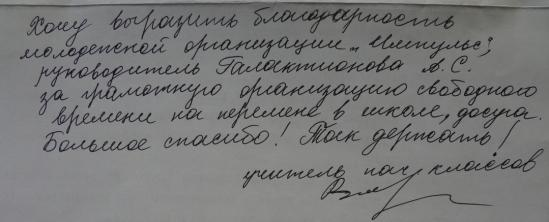 Хочу выразить благодарность
молодежной организации „Импульс",
руководитель Галактионова А.С.
за грамотную организацию свободного
времени на перемене в школе, досуга.
Большое спасибо! Так держать!
учитель нач классов